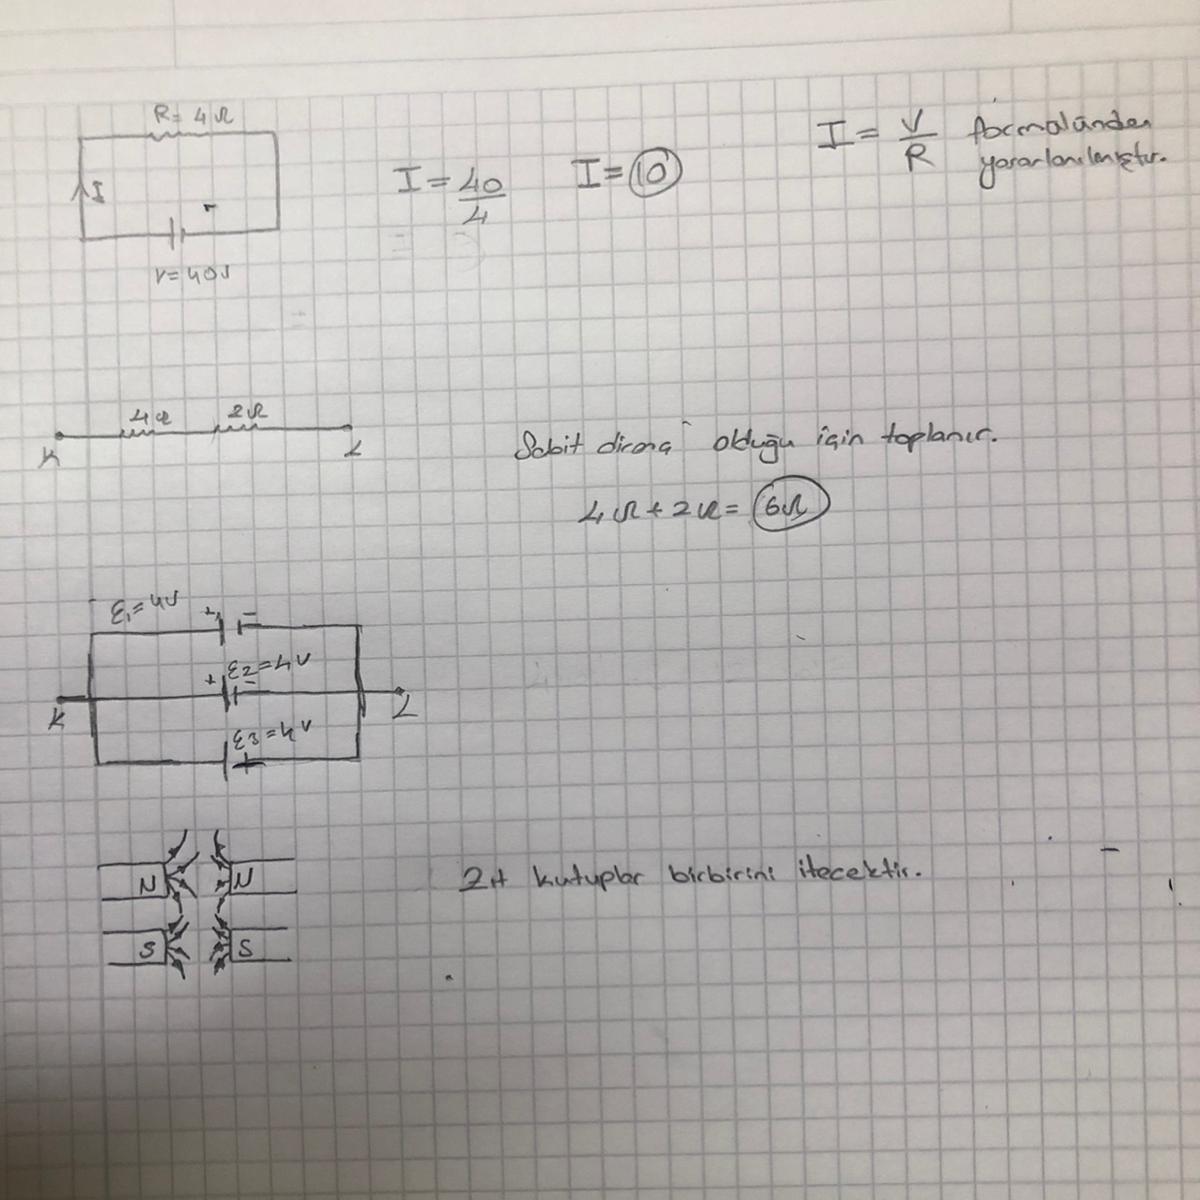 R= 4Ω
I
V=40V
I = 40/4
I= 10
I = V/R formulünden
yararlanılmıştır.
4Ω 2Ω
K L
Sabit direnç olduğu için toplanır.
4Ω+2Ω= 6Ω
ε1=4V + -
+ ε2=4V -
K L
ε3=4V
+
N N
S S
Zıt kutuplar birbirini itecektir.